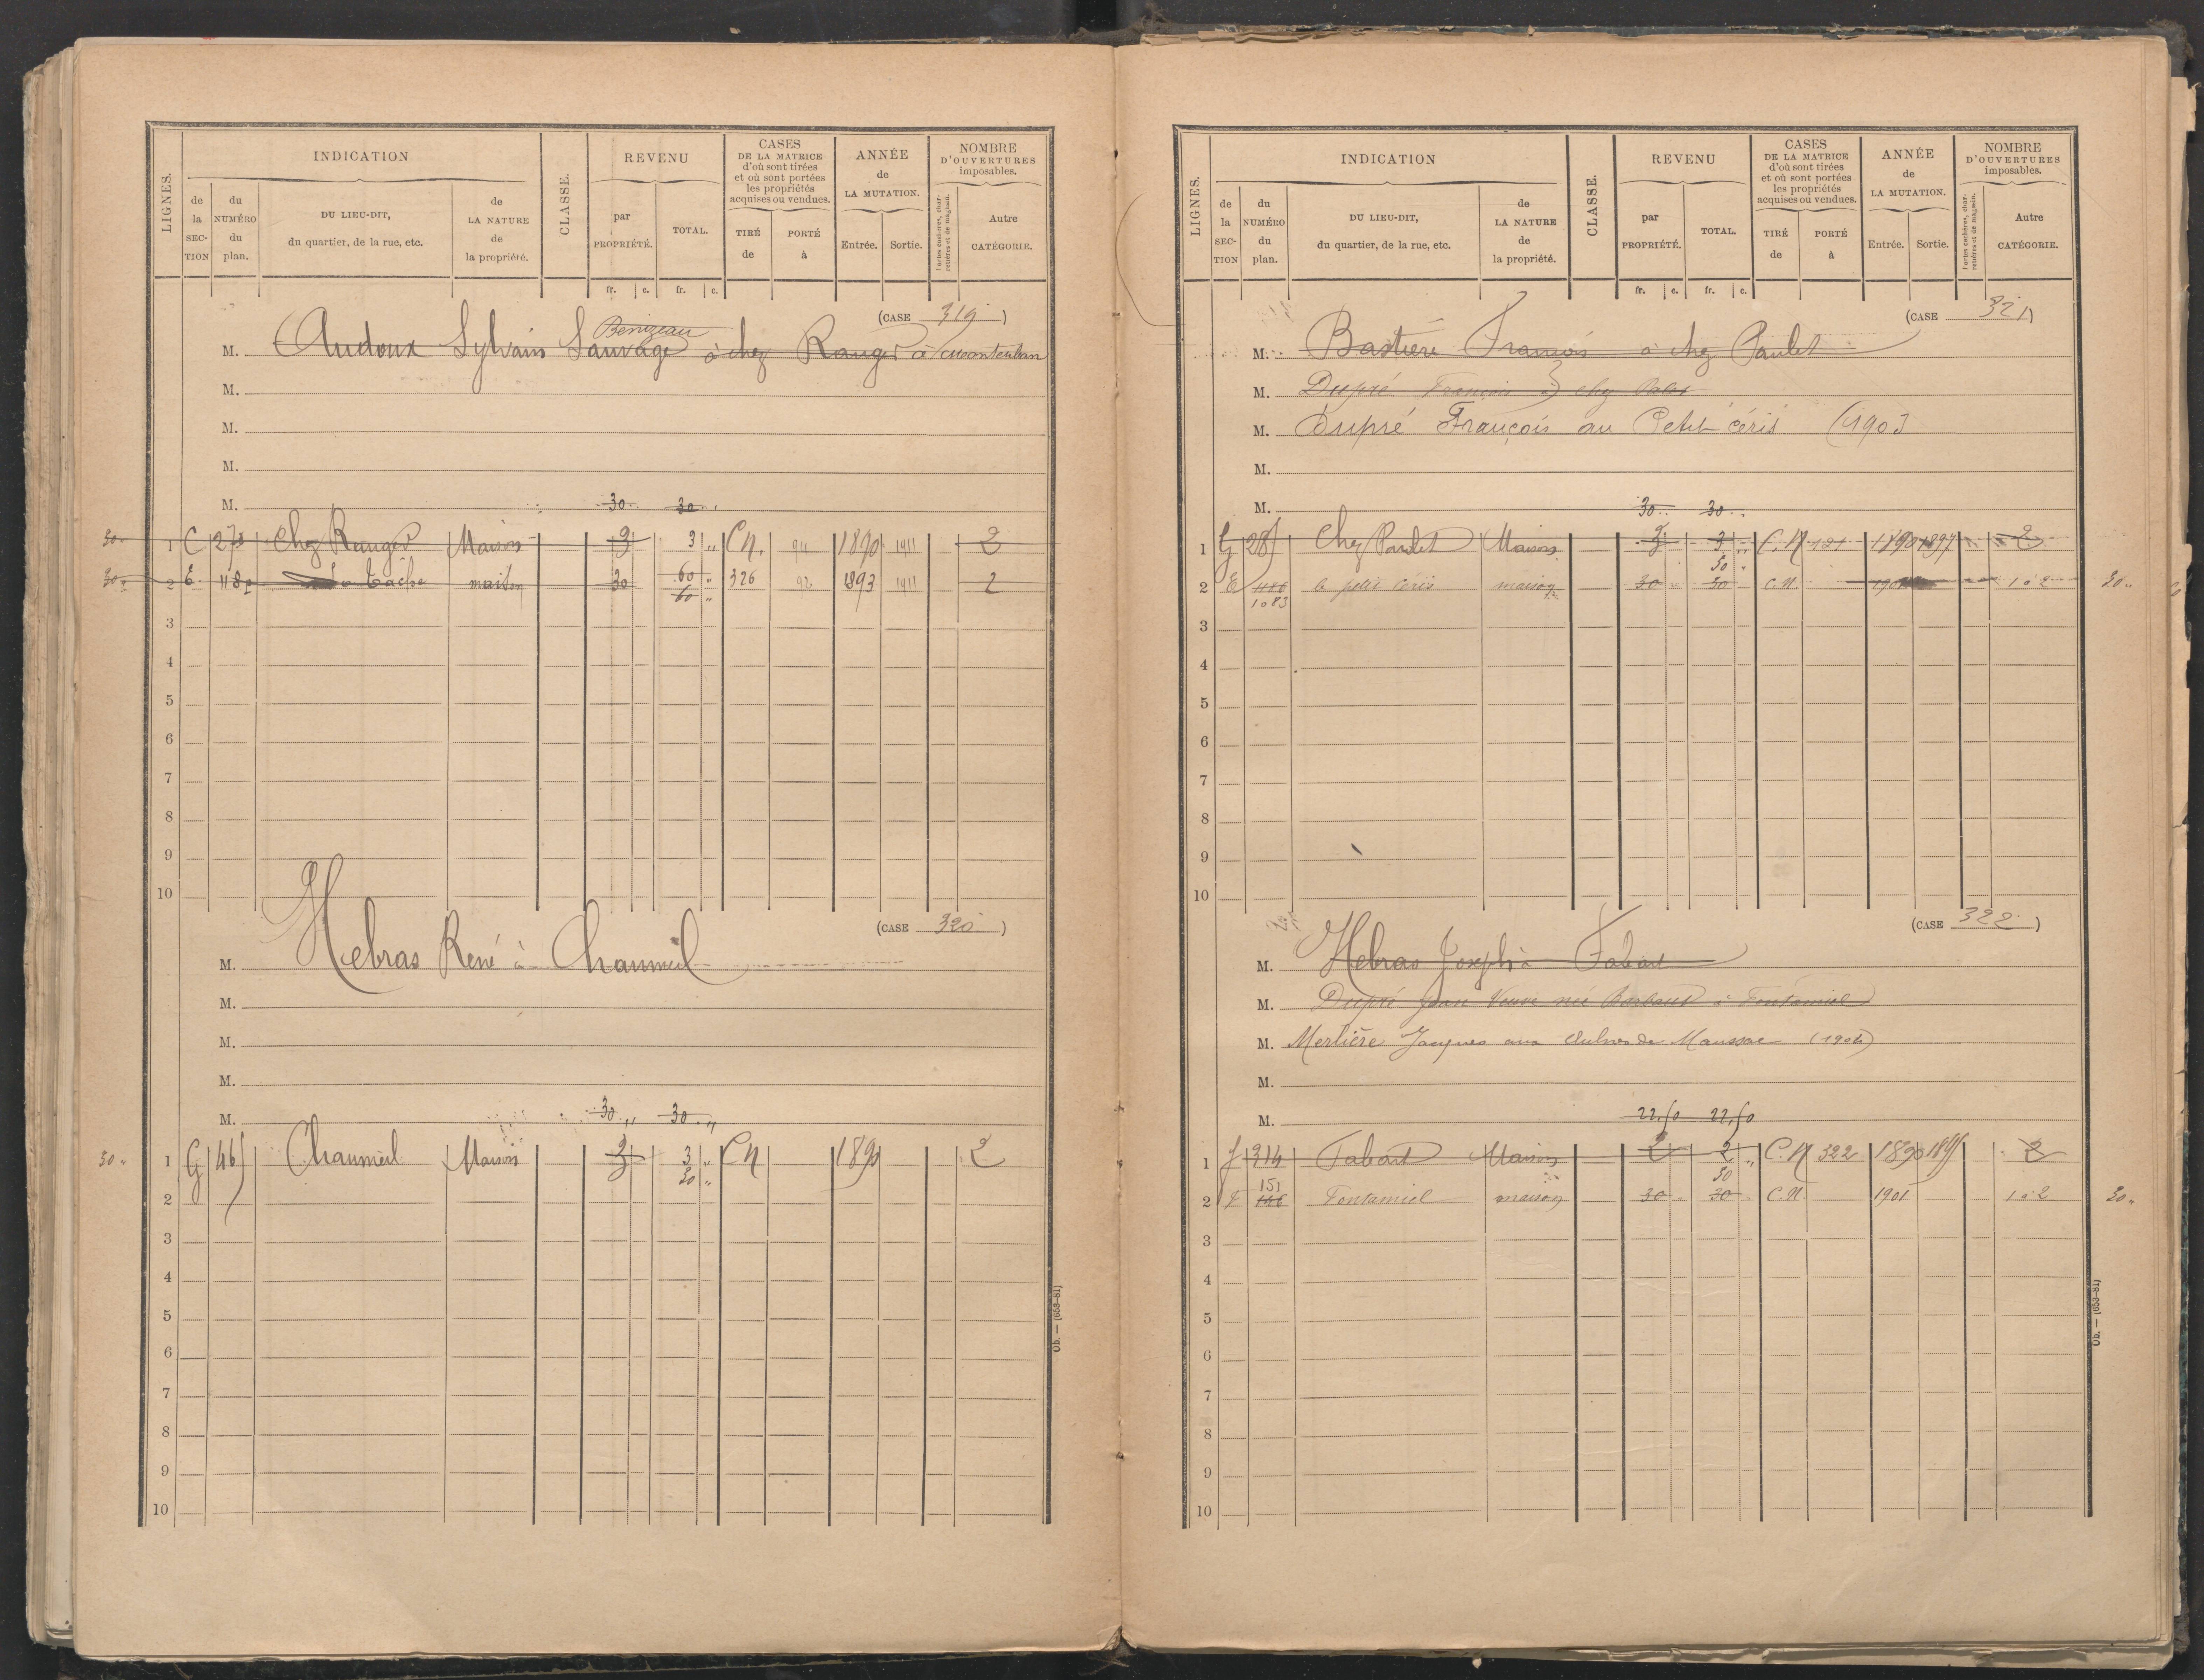 LIGNES.
INDICATION
de la SECTION
du NUMÉRO du plan.
DU LIEU-DIT, du quartier, de la rue, etc.
de LA NATURE de la propriété.
CLASSE.
REVENU
par PROPRIÉTÉ.
TOTAL.
CASES DE LA MATRICE d'où sont tirées et où sont portées les propriétés acquises ou vendues.
TIRÉ de
PORTÉ à
ANNÉE de LA MUTATION.
Entrée.
Sortie.
NOMBRE D'OUVERTURES imposables.
Portes cochères, charretières et de magasin.
Autre CATÉGORIE.
fr. c. fr. c.
(CASE 319)
Benizeau
M. Audoux Sylvain Sauvage à chez Ranger à
M.
M.
M.
M. 30 30
30 1 C 273 Chez Ranger Maison 3 3 " C N. 94 1890 1911 2
30 2 E 118 la Tâche maison 30 60 " 326 92 1893 1911 2
60 "
3
4
5
6
7
8
9
10
(CASE 320)
M. Hebras René à Chaumeil
M.
M.
M.
M. 30 " 30 "
30 " 1 G 465 Chaumeil Maison 3 3 " C N 1890 2
30 "
2
3
4
5
6
7
8
9
10
Ob. — (653-81)
LIGNES.
INDICATION
de la SECTION
du NUMÉRO du plan.
DU LIEU-DIT, du quartier, de la rue, etc.
de LA NATURE de la propriété.
CLASSE.
REVENU
par PROPRIÉTÉ.
TOTAL.
CASES DE LA MATRICE d'où sont tirées et où sont portées les propriétés acquises ou vendues.
TIRÉ de
PORTÉ à
ANNÉE de LA MUTATION.
Entrée.
Sortie.
NOMBRE D'OUVERTURES imposables.
Portes cochères, charretières et de magasin.
Autre CATÉGORIE.
fr. c. fr. c.
(CASE 321)
M. Bastière François à chez Paulet
M. Dupré François à chez Palet
M. Dupré François au Petit céris (1903
M.
M. 30 30
1 G 285 Chez Paulet Maison 3 3 " C. N 121 1890 1897 2
30 "
2 E 1083 le petit Céris maison 30 30 C. N. 1901 1 à 2 30 "
3
4
5
6
7
8
9
10
(CASE 322)
M. Hebras Joseph à Fabart
M. Dupré Jean Veuve née Barbaud à Fontamiel
M. Merlière Jacques aux de Maussac (1906)
M.
M. 22.50 22.50
1 J 314 Fabart Maison 2 2 " C. N 322 1890 1895 2
30
2 F 151 146 Fontamiel maison 30 30 C. N. 1901 1 à 2 30 "
3
4
5
6
7
8
9
10
Ob. — (653-81)